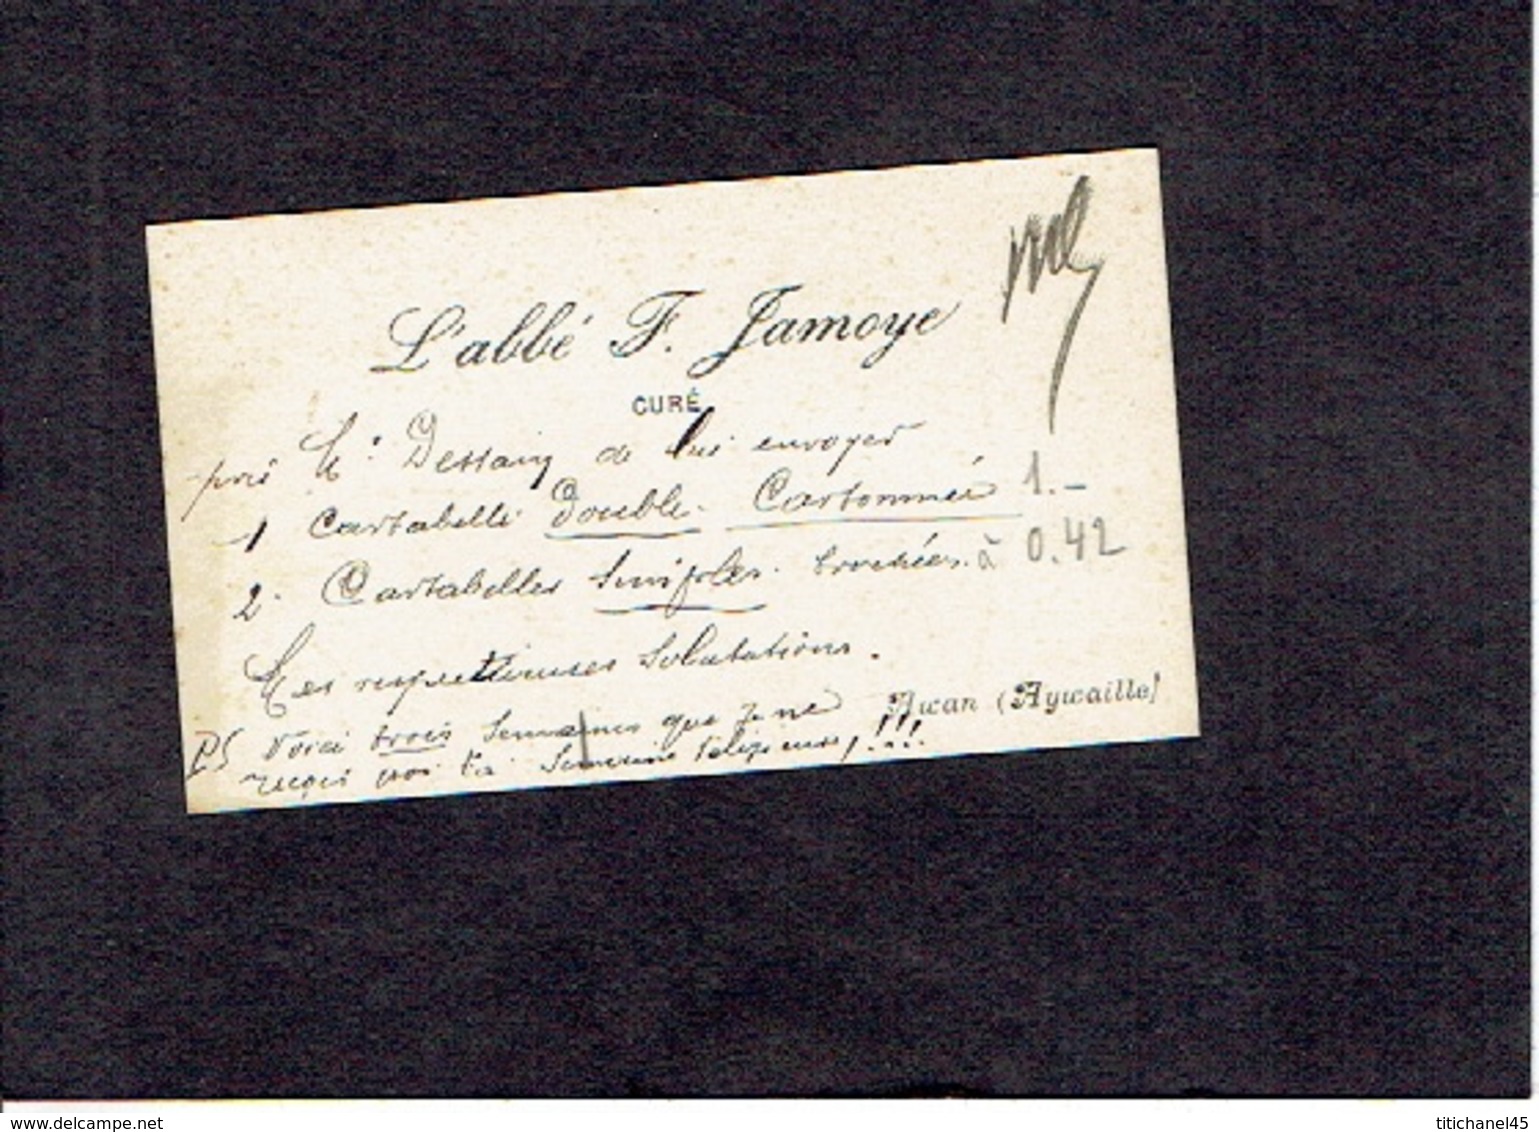 L'abbé F. Jamoye
CURÉ
prie M. Dessain de lui envoyer
1 Cartabelle Double. Cartonnée 1.-
2. Cartabelles Simples. brochées. à 0.42
Mes respectueuses salutations.
Awan (Aywaille)
PS Voici trois semaines que je ne
reçois pas la Semaine religieuse,!!!
titichanel45